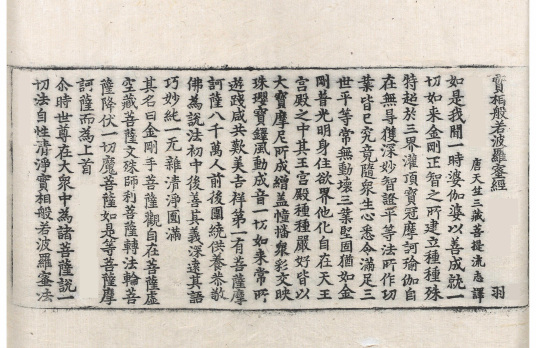 實相般若波羅蜜經
唐天竺三藏菩提流志譯 羽
如是我聞一時婆伽婆以善成就一
切如來金剛正智之所建立種種殊
特超於三界灌頂寶冠摩訶瑜伽自
在無㝵獲深妙智證平等法所作功
業皆已究竟隨衆生心悉令滿足三
世平等常無動壞三業堅固猶如金
剛普光明身住欲界他化自在天王
宮殿之中其王宮殿種種嚴好皆以
大寶摩尼所成繒盖幢幡衆彩交映
珠瓔寶鐸風動成音一切如來常所
遊踐咸共歎美吉祥第一有菩薩摩
訶薩八千萬人前後圍繞供養恭敬
佛為說法初中後善其義深遠其語
巧妙純一无雜清淨圓滿
其名曰金剛手菩薩觀自在菩薩虛
空藏菩薩文殊師利菩薩轉法輪菩
薩降伏一切魔菩薩如是等菩薩摩
訶薩而為上首
尒時世尊在大衆中為諸菩薩說一
切法自性清淨實相般若波羅蜜法